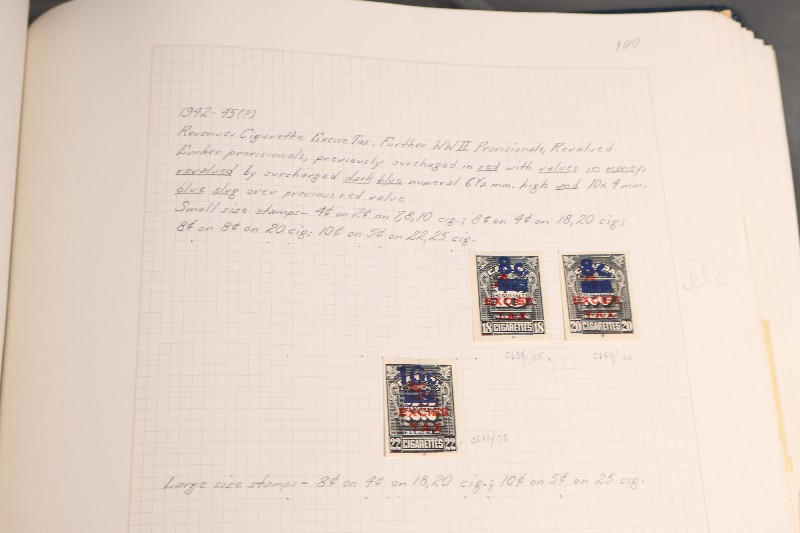 100
1942-45(?)
Revenue: Cigarette Excise Tax. Further WWII Provisionals, Revalued.
Earlier provisionals, previously surcharged in red with values in money,
revalued by surcharged dark blue numeral 6½ mm. high and 10x4 mm.
blue slug over previous red value.
Small size stamps- 4¢ on 2¢ on 7,8,10 cig.; 8¢ on 4¢ on 18,20 cig;
8¢ on 8¢ on 20 cig; 10¢ on 5¢ on 22,25 cig.
8c.
EXCISE
TAX
18 CIGARETTES 18
8c.
EXCISE
TAX
20 CIGARETTES 20
10c.
EXCISE
TAX
22 CIGARETTES 22
Large size stamps- 8¢ on 4¢ on 18,20 cig.; 10¢ on 5¢ on 25 cig.